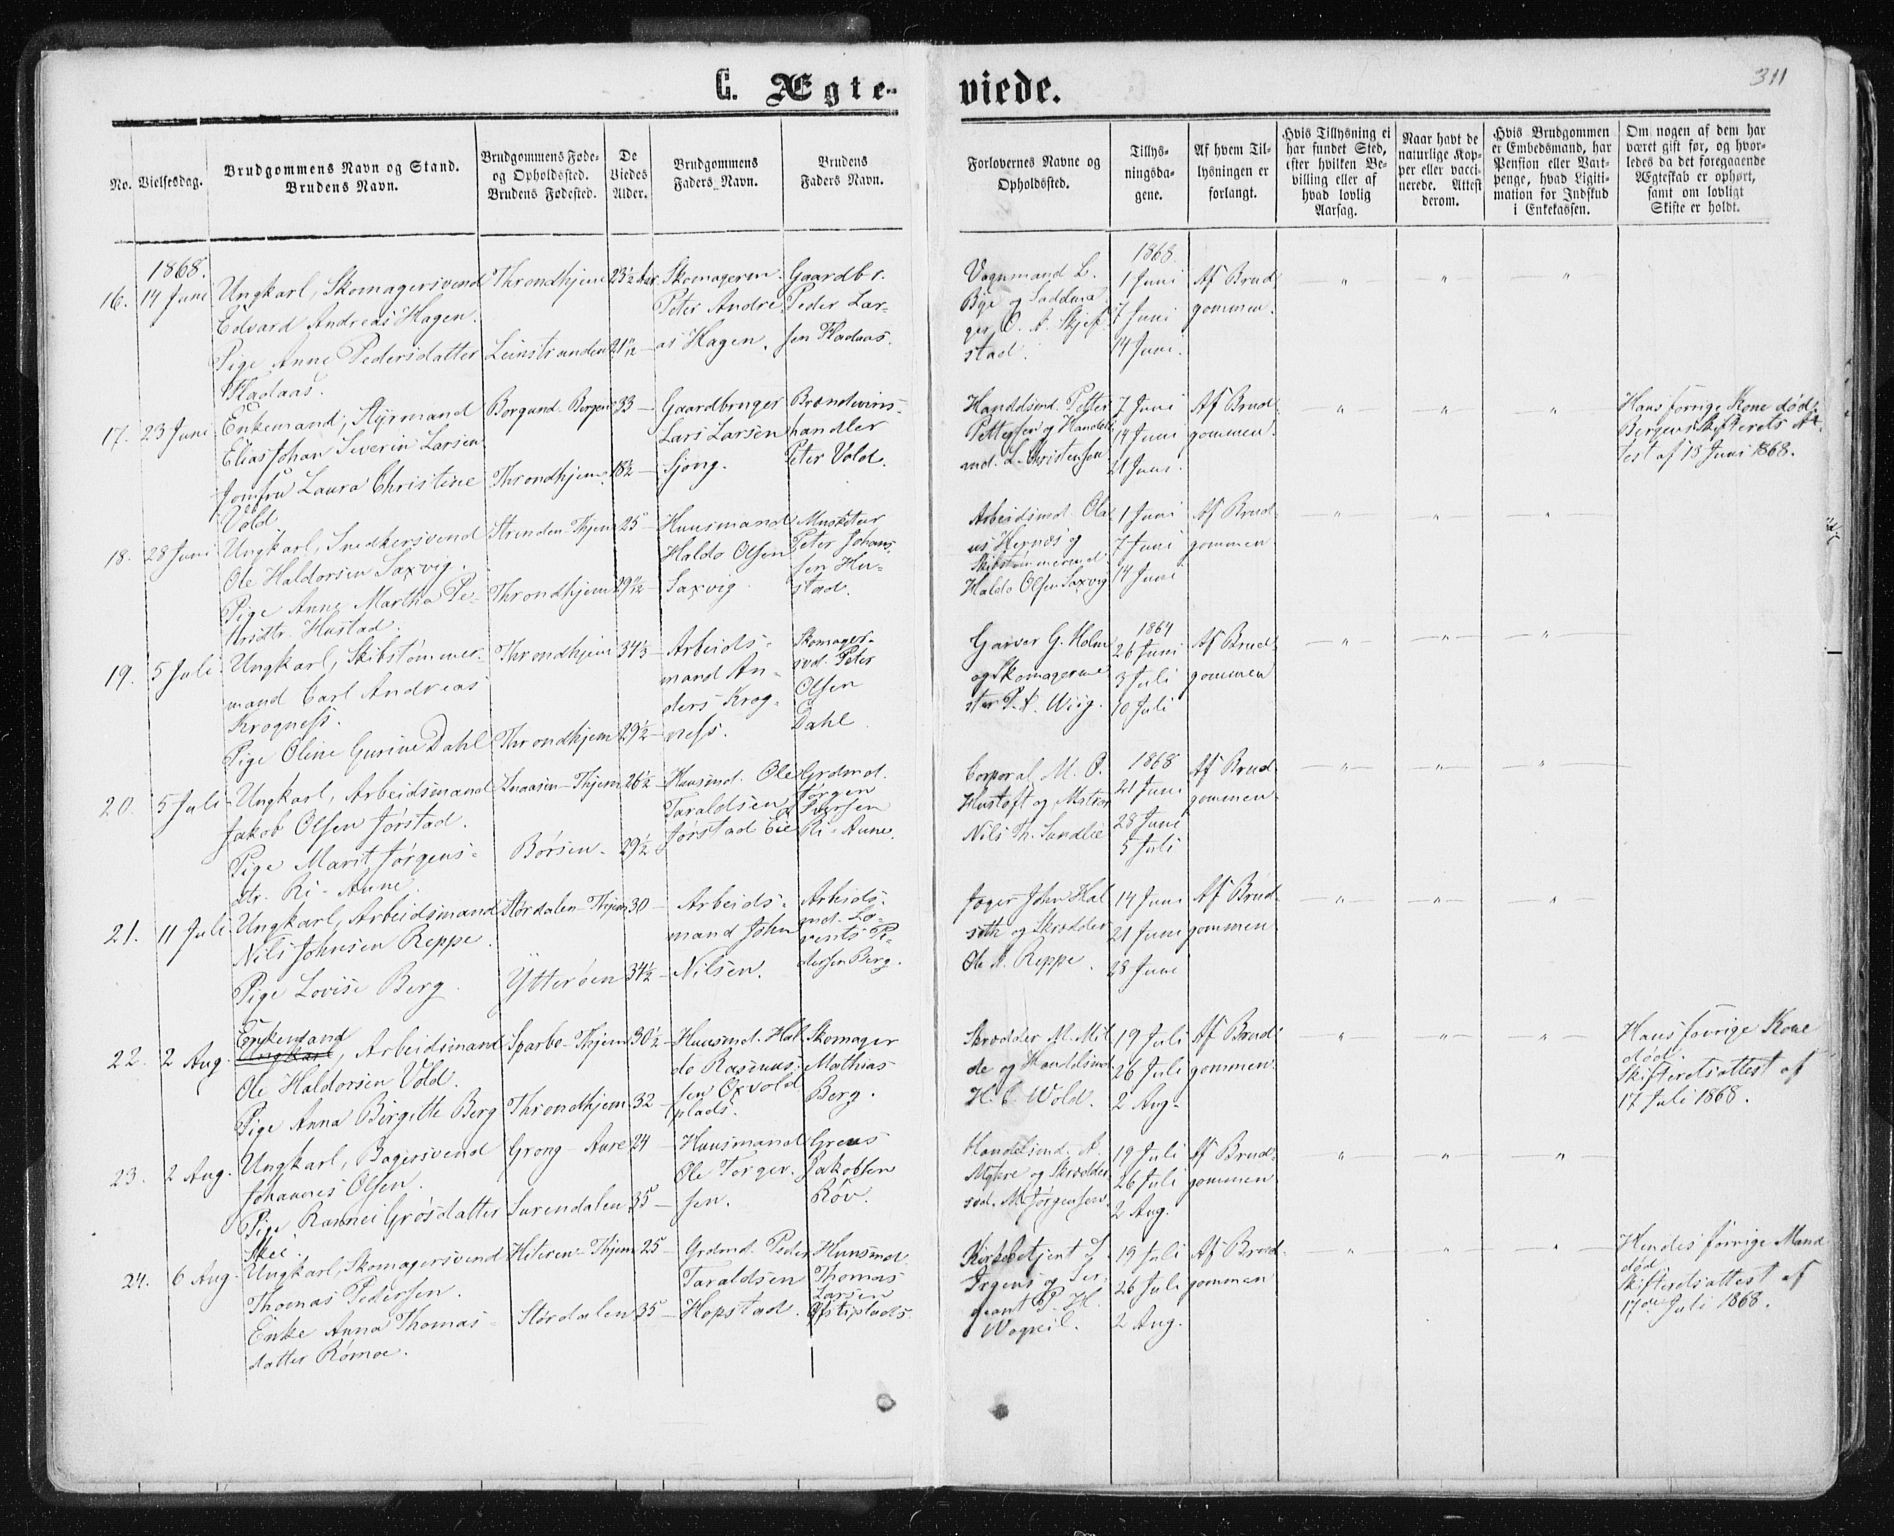 311
C. Ægte-
viede.
No.
Vielsesdag.
Brudgommens Navn og Stand.
Brudens Navn.
Brudgommens Føde-
og Opholdssted.
Brudens Fødested.
De
Viedes
Alder.
Brudgommens
Faders Navn.
Brudens
Faders Navn.
Forlovernes Navne og
Opholdssted.
Tillys-
ningsda-
gene.
Af hvem Til-
lysningen er
forlangt.
Hvis Tillysning ei
har fundet Sted,
efter hvilken Be-
villing eller af
hvad lovlig
Aarsag.
Naar havt de
naturlige Kop-
per eller vacci-
nerede. Attest
derom.
Hvis Brudgommen
er Embedsmand, har
Pension eller Vart-
penge, hvad Ligiti-
mation for Indskud
i Enkekassen.
Om nogen af dem har
været gift før, og hvor-
ledes da det foregaaende
Ægteskab er ophørt,
samt om lovligt
Skifte er holdt.
1868.
16.
14 Juni
Ungkarl, Skomagersvend
Edvard Andreas Hagen.
Pige Anne Pedersdatter
Fladaas.
Throndhjem
Leinstranden
23½ Aar
21 11/12 —
Skomagerm.
Peter Andre-
as Hagen.
Gaardbr.
Peder Lar-
sen Fladaas.
Vognmand L.
Bye og Saddma-
ger O. A. Skjef-
stad.
1868.
1 Juni
7 Juni
14 Juni.
Af Brud
gommen.
17.
23 Juni
Enkemand, Styrmand
Elias Johan Severin Larsen
Jomfru Laura Christine
Vold.
Borgund. Bergen
Throndhjem
33 —
18½ —
Gaardbruger
Lars Larsen
Sjong.
Brændeviins-
handler
Peter Vold.
Handelsmd. Petter
Pettersen og Handels
md. L. Christensen
7 Juni
14 Juni
21 Juni.
Af Brud
gommen.
Hans forrige Kone død;
Bergens Skifterets At-
test af 13 Juni 1868.
18.
28 Juni
Ungkarl, Snedkersvend
Ole Haldorsen Saxvig.
Pige Anne Martha Pe-
tersdtr. Hustad.
Strinden-Thjem
Throndhjem
25 —
29 11/12 —
Huusmand
Haldo Olsen
Saxvig
Musketeer
Peter Johan-
sen Hu-
stad.
Arbeidsmd. Ola-
us Hernæs og
Skibstømmermd
Haldo Olsen Saxvig
1 Juni
7 Juni
14 Juni
Af Brud
gommen
19.
5 Juli
Ungkarl, Skibstømmer-
mand Carl Andreas
Krogness.
Pige Oline Gurine Dahl
Throndhjem
Throndhjem
34⅓
29½ —
Arbeids-
mand An-
ders Krog-
ness.
Skomager-
svd. Peter
Olsen
Dahl.
Garver G. Holm
og Skomagerme
ster P. A. Wiig.
1864
26 Juni
3 Juli
10 Juli
Af Brud
gommen
20.
5 Juli
Ungkarl, Arbeidsmand
Jakob Olsen Jørstad.
Pige Marit Jørgens-
dtr. Ri-Aune.
Snaasen-Thjem
Børsen-
26½ —
29½ —
Huusmd. Ole
Taraldsen
Jørstad Eie
Grdmd.
Jørgen
Iversen
Ri-Aune.
Corporal M. O.
Hustoft og Mstrsv
Nils Th. Sundlie
1868
21 Juni
28 Juni
5 Juli
Af Brud
gommen-
21.
11 Juli
Ungkarl, Arbeidsmand
Nils Johnsen Reppe.
Pige Lovise Berg.
Størdalen-Thjem
Ytterøen
30 —
34½ —
Arbeids-
mand John
Nilsen.
Arbeids-
md. Lo-
rents Pe-
dersen Berg.
Jæger John Hal
seth og Skrædder
Ole N. Reppe.
14 Juni
21 Juni
28 Juni
Af Brud
gommen
22.
2 Aug.
Enkemand
Ungkarl, Arbeidsmand
Ole Haldorsen Vold.
Pige Anna Birgitte Berg
Sparbo-Thjem
Throndhjem
30½ —
32 —
Huusmd. Hal
do Rasmus-
sen Oxvold
plads.
Skomager
Mathias
Berg.
Skrædder M. Mil
de og Handelsmd
H. C. Wold.
19 Juli
26 Juli
2 Aug-
Af Brud
gommen.
Hans forrige Kone
død.
Skifteretsattest af
17 Juli 1868.
23.
2 Aug.
Ungkarl, Bagersvend
Johannes Olsen.
Pige Rannei Grøsdatter
Skei.
Grong Aure
Surendalen
24 —
35 —
Huusmand
Ole Torger-
sen.
Greus
Jakobsen
Röv.
Handelsmd. A.
Myhre og Skrædder
svd. M. Jørgensen.
19 Juli
26 Juli
2 Aug.
Af Brud-
gommen
24.
6 Aug.
Ungkarl, Skomagersvend
Thomas Pedersen.
Enke Anna Thomas-
datter Rømoe.
Hiteren-Thjem
Størdalen
25 —
35 —
Grdmd. Peder
Taraldsen
Hopstad.
Huusmd.
Thomas
Larsen
Kirkebetjent L.
Irgens og Ser-
geant P. H.
19 Juli
26 Juli
2 Aug.
Af Brud
gommen
Hendes forrige Mand
død
Skifteretsattest af
17de Juli 1868.